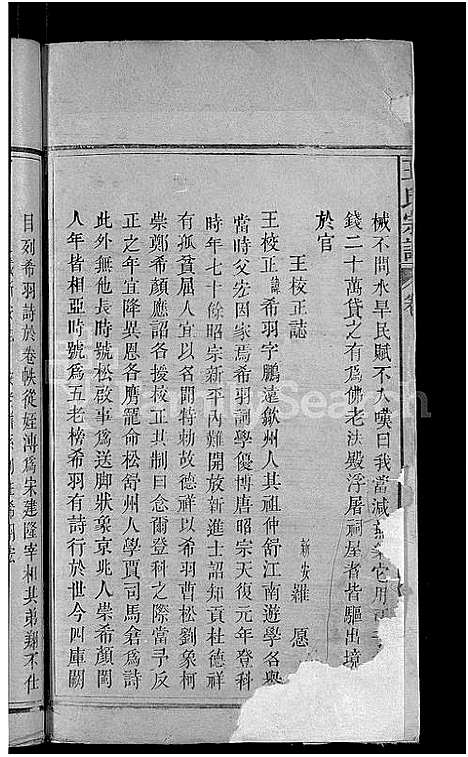 王氏宗譜
卷
械不問水旱民賦不入嘆曰我當減
錢二十萬貸之有爲佛老法殿浮屠祠屋者皆驅出境
於官
王校正誌
新安羅愿
王校正諱希羽字鵬遠歙州人其祖仲舒江南遊學名與
當時父宏因家焉希羽詞學優博唐昭宗天復元年登科
時年七十餘昭宗新平內難開放新進士詔知貢杜德祥
有孤貧屈人宜以名聞特勅故德祥以希羽曹松劉象柯
崇鄭希顏應詔各援校正其制曰念爾登科之際當予反
正之年宜降異恩各膺寵命松舒州人學賈司馬舍爲詩
此外無他長時號松啟事爲送脚狀象京兆人崇希顏閩
人年皆相亞時號爲五老榜希羽有詩行於世今四庫闕
目列希羽詩於卷帙從姪溥爲宋建隆宰相其弟翔不仕
FamilySearch